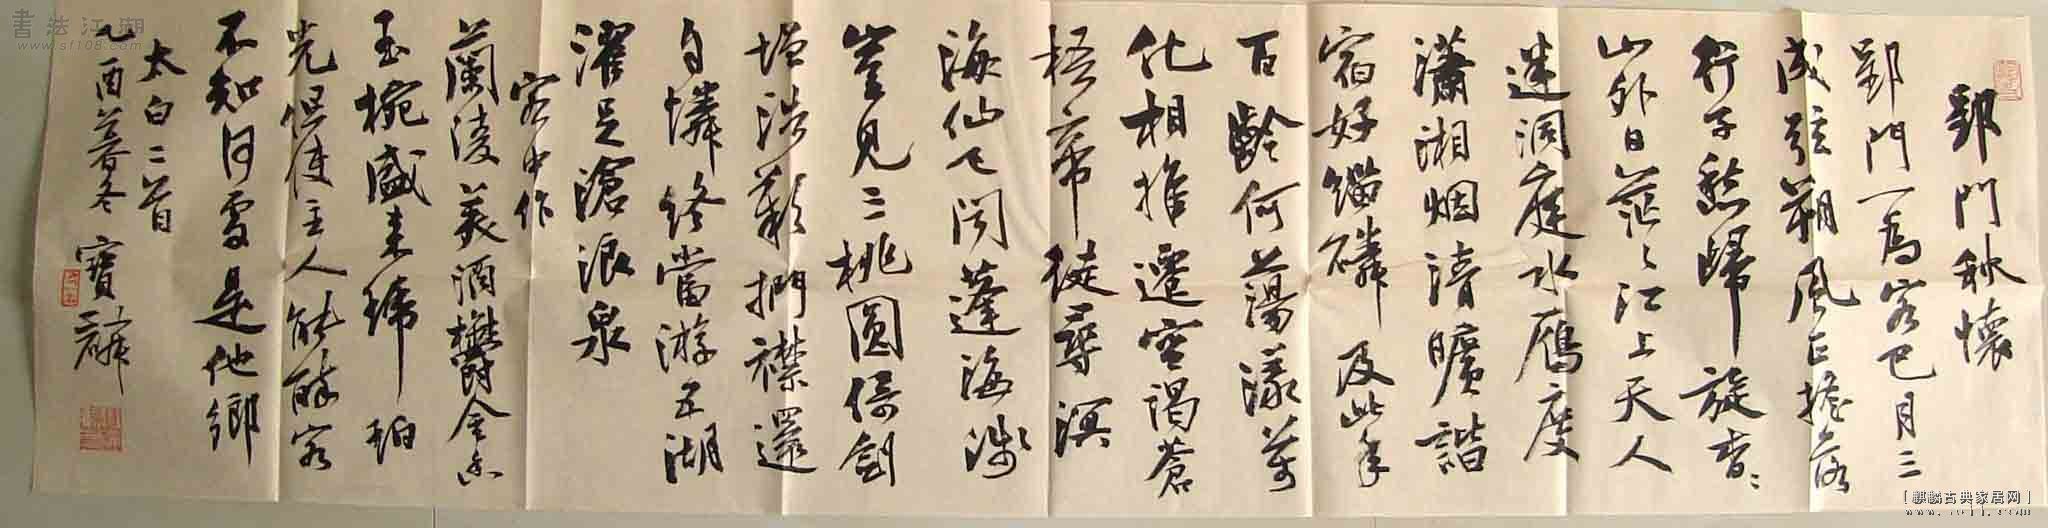 郢門秋懷
郢門一為客巳月三
成弦朔風正搖落
行子愁歸旋杳々
山外日茫々江上天人
迷洞庭水鴈度
瀟湘烟清曠諧
宿好緇磷及此年
百齡何蕩漾萬
化相推遷空謁蒼
梧帝徒尋溟
海仙已聞蓬海淺
豈見三桃圓倚劍
增浩歎捫襟還
自憐終當游五湖
濯足滄浪泉
客中作
蘭陵美酒鬱金香
玉椀盛來琥珀
光但使主人能醉客
不知何處是他鄉
太白二首
乙酉暮冬 寶麟
書法江湖
www.sf108.com
[麒麟古典家居网]